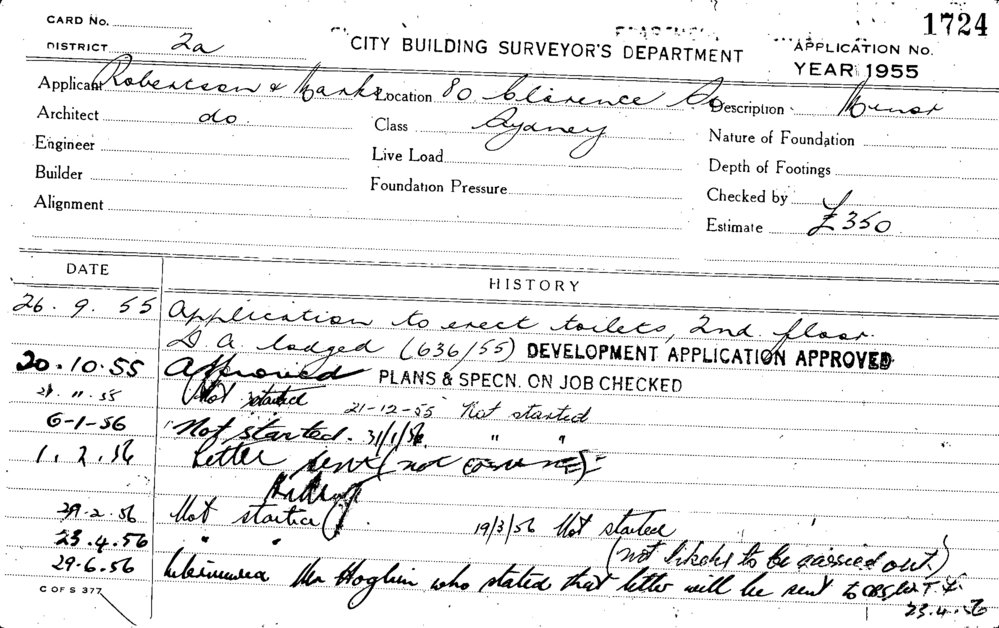 CARD No.
1724
DISTRICT 2a
CITY BUILDING SURVEYOR'S DEPARTMENT
APPLICATION No.
YEAR 1955
Applicant Robertson & Marks Location 80 Clarence St Description Minor
Architect do. Class Sydney Nature of Foundation
Engineer Live Load Depth of Footings
Builder Foundation Pressure Checked by
Alignment Estimate £350
DATE HISTORY
26. 9. 55 Application to erect toilets, 2nd. floor.
D A. lodged (636/55) DEVELOPMENT APPLICATION APPROVED
20.10.55 Approved PLANS & SPECN. ON JOB CHECKED
21. 11. 55 Not started 21-12-55 Not started
6-1-56 Not started. 31/1/56 " "
1. 2. 56 Letter sent (not
29.2.56 Not started 19/3/56 Not started
23.4.56 " " (not likely to be carried out)
29.6.56 Mr who stated that letter will be sent to
23.4.56
C OF S 377